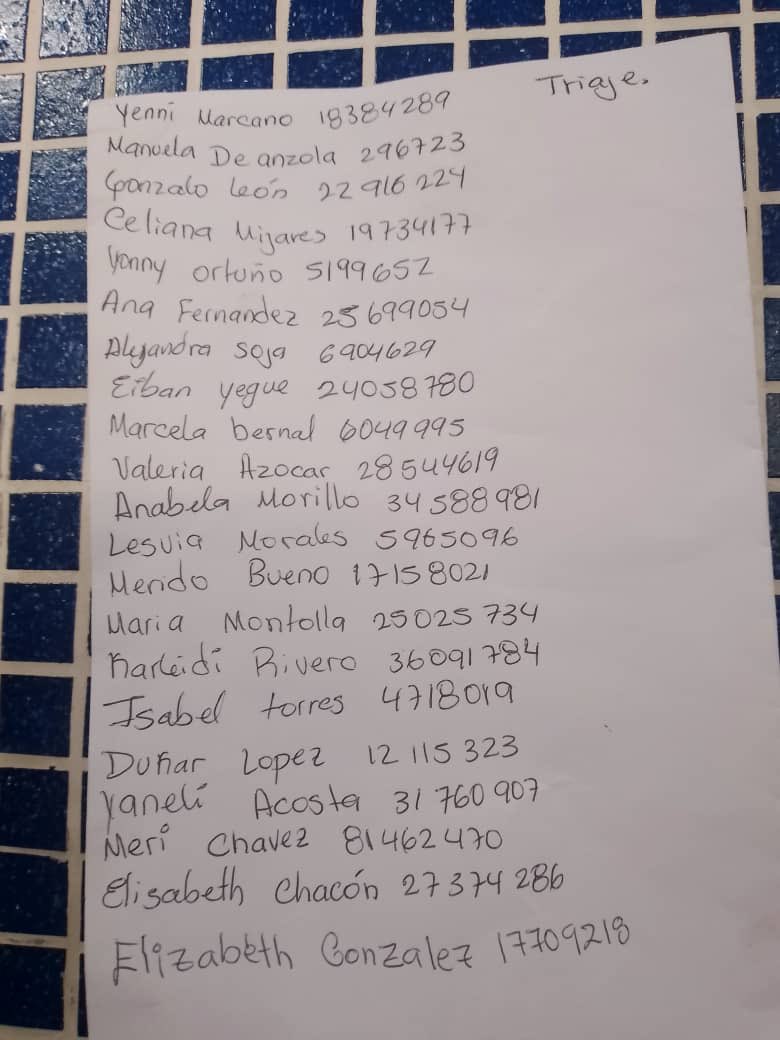 Triaje.
Yenni Marcano 18384289
Manuela De anzola 296723
Gonzalo León 22 916 224
Celiana Mijares 19734177
Yonny ortuño 5199652
Ana Fernandez 25699054
Alejandra soja 6904629
Eiban yegue 24058780
Marcela bernal 6049995
Valeria Azocar 28544619
Anabela Morillo 34588981
Lesvia Morales 5965096
Merido Bueno 17158021
Maria Montolla 25025734
Karleidi Rivero 36091784
Isabel torres 4718019
Duñar Lopez 12115323
Yaneli Acosta 31760907
Meri Chavez 81462470
Elisabeth Chacón 27374286
Elizabeth Gonzalez 17709218